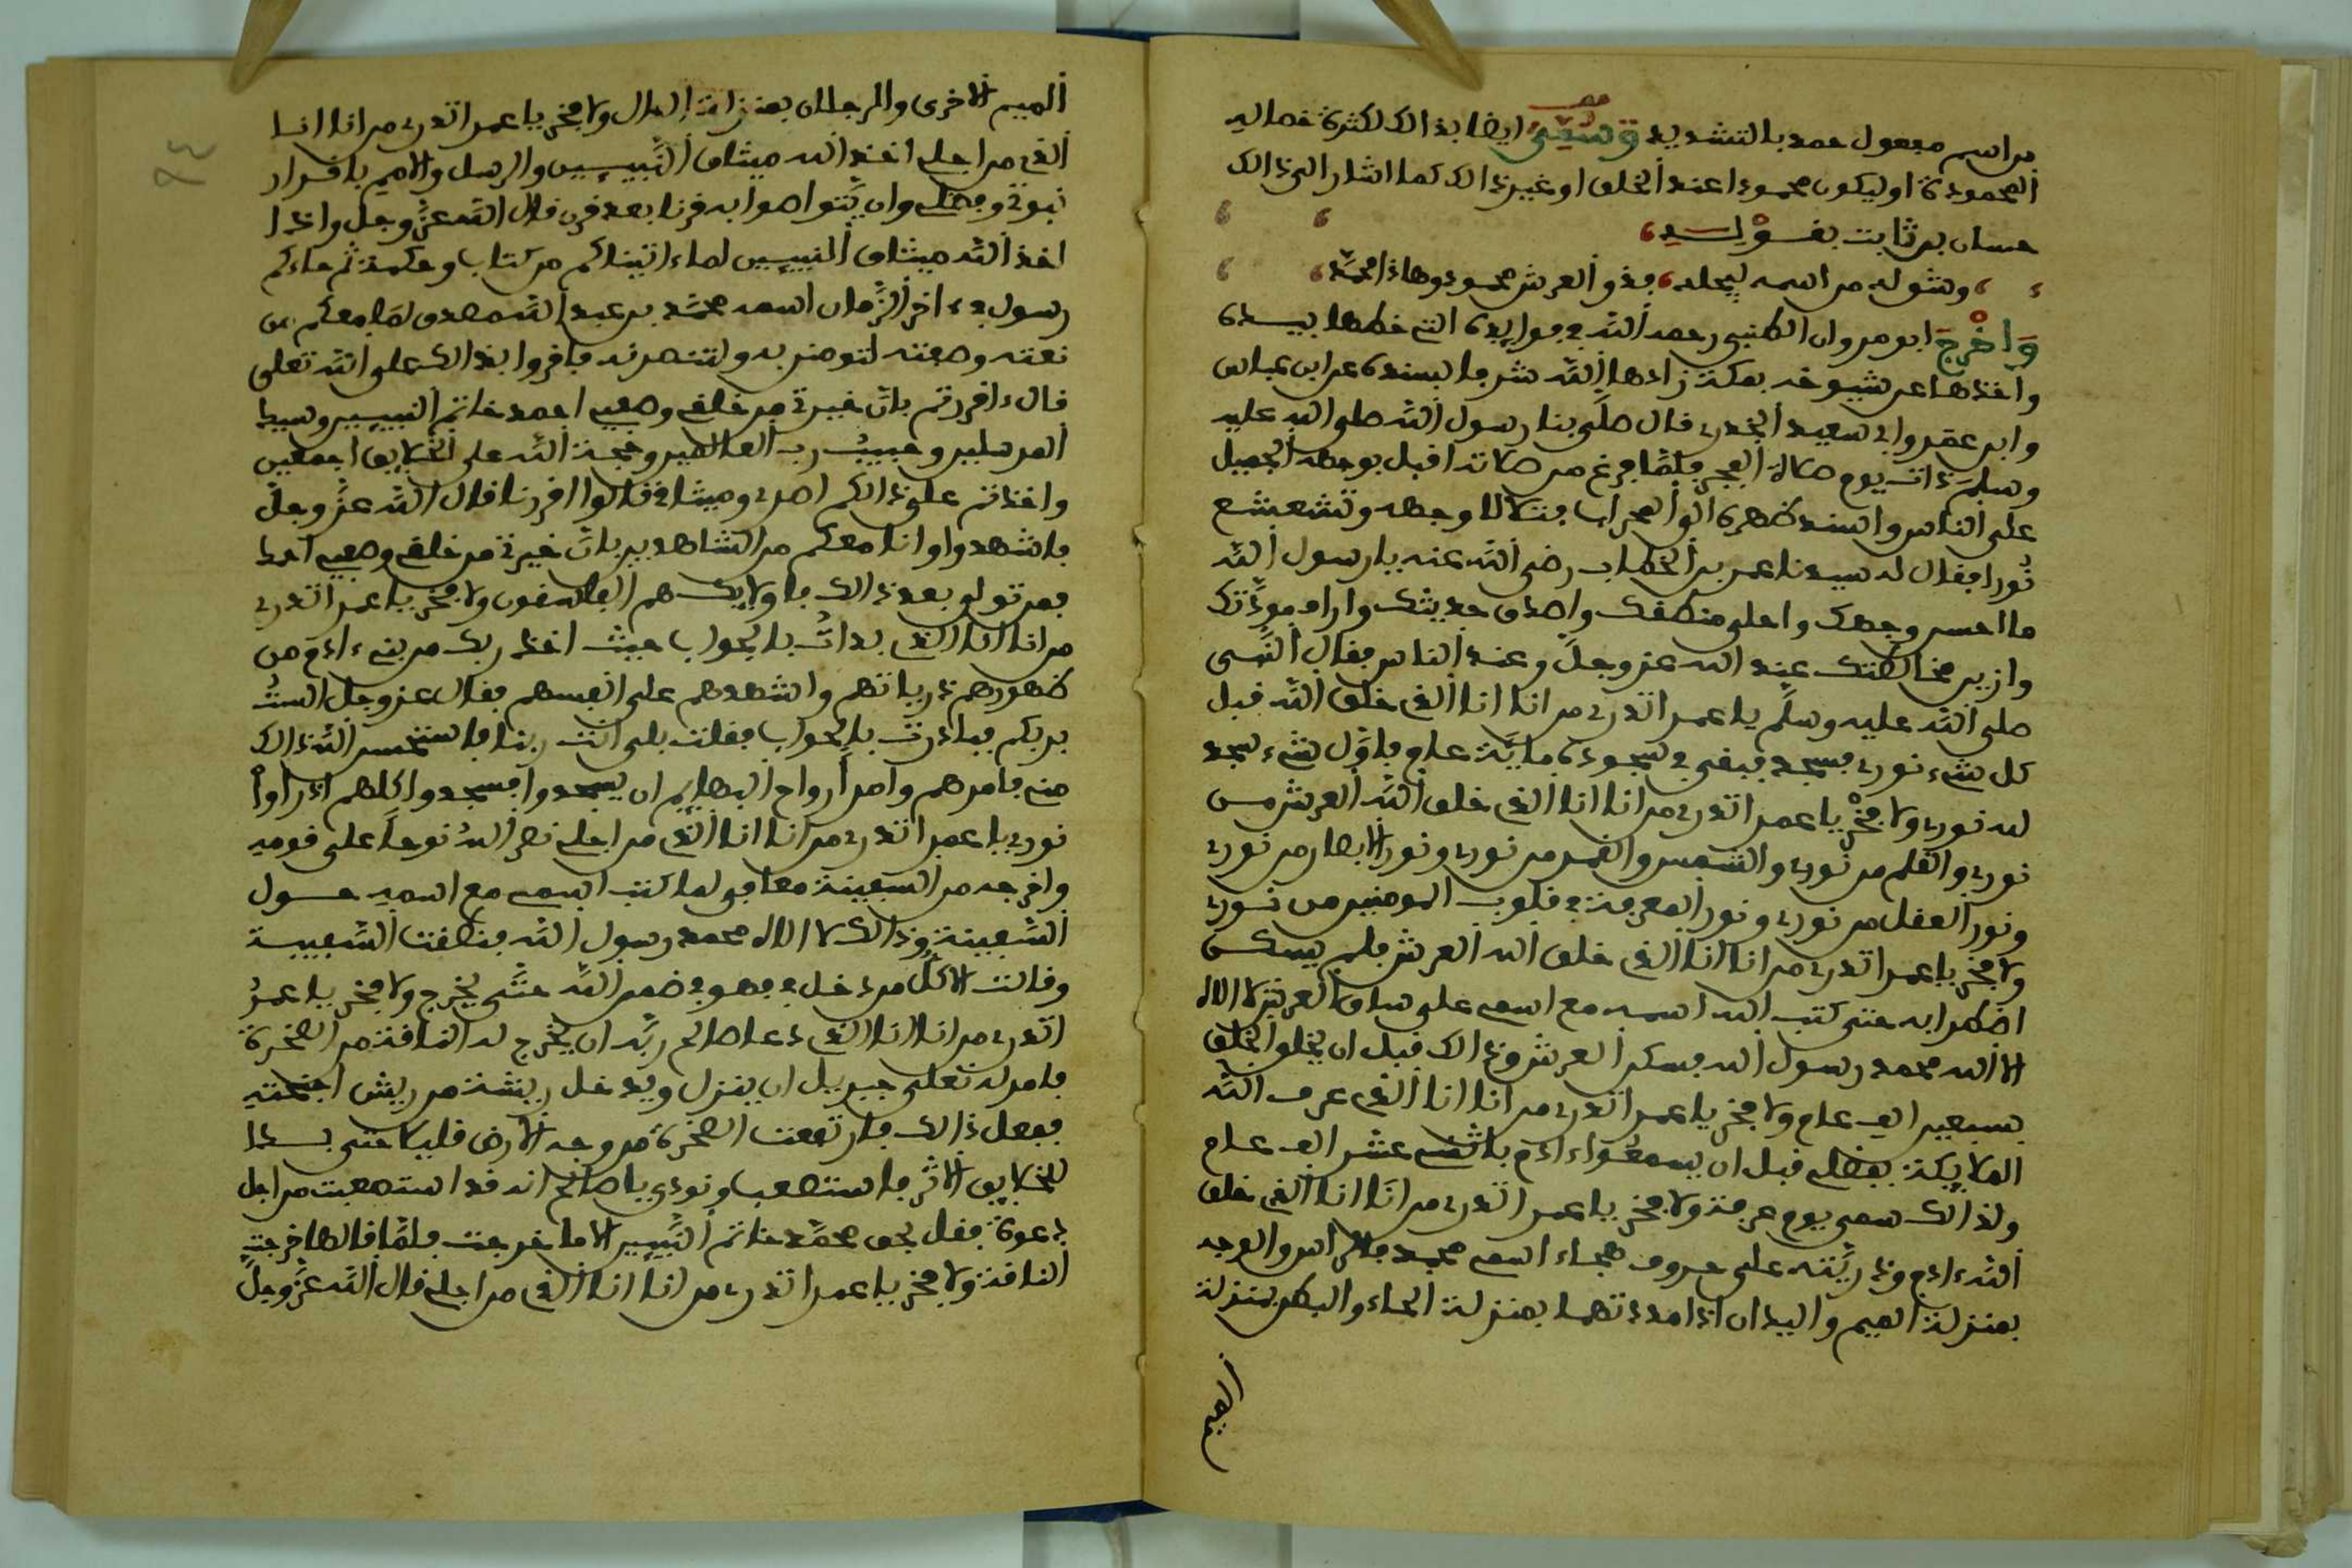 من اسم مفعول حمد بالتشديد وسمي ايضا بذالك لكثرة خصاله
المحمودة او ليكون محمودا عند الخلق او غير ذالك كما اشار الى ذالك
حسان بن ثابت بقوله
وشق له من اسمه ليجله فذو العرش محمود وهاذا محمد
واخرج ابو مروان الطبني رحمه الله في فوايده التي خطها بيده
واخذها عن شيوخه بمكة زادها الله شرفا بسنده عن ابن عباس
وابن عمر وابي سعيد الخدري قال صلى بنا رسول الله صلى الله عليه
وسلم ذات يوم صلاة الفجر فلما فرغ من صلاته اقبل بوجهه الجميل
على الناس واسند ظهره الى المحراب فتلالا وجهه وتشعشع
نورا فقال له سيدنا عمر بن الخطاب رضي الله عنه يا رسول الله
ما احسن وجهك واحلى منطقك واصدق حديثك وارا مودتك
وازين مخالطتك عند الله عز وجل وعند الناس فقال النبي
صلى الله عليه وسلم يا عمر اتدري من انا انا الذي خلق الله قبل
كل شيء نوري فسجد فبقي في سجوده ماية عام فاول شيء سجد
لله نوري ولا فخر يا عمر اتدري من انا انا الذي خلق الله العرش من
نوري والقلم من نوري والشمس والقمر من نوري ونور الابصار من نوري
ونور العقل من نوري ونور المعرفة في قلوب المومنين من نوري
ولا فخر يا عمر اتدري من انا انا الذي خلق الله العرش فلم يسكن
اضطرابه حتى كتب الله اسمه مع اسمي على ساق العرش لا اله
الا الله محمد رسول الله فسكن العرش وذالك قبل ان يخلق الخلق
بسبعين الف عام ولا فخر يا عمر اتدري من انا انا الذي عرف الله
الملايكة بفضلي قبل ان يسمعوا ءادم باثني عشر الف عام
ولذالك سمي يوم عرفة ولا فخر يا عمر اتدري من انا انا الذي خلق
الله ءادم وذريته على حروف هجاء اسمي محمد فالراس والوجه
بمنزلة الميم واليدان اذا مددتهما بمنزلة الحاء والبطن بمنزلة
الميم
الميم الاخرى والرجلان بمنزلة الدال ولا فخر يا عمر اتدري من انا انا
الذي من اجلي اخذ الله ميثاق النبيين والرسل والامم باقرار
نبوتي وفضلي وان يتواصوا به قرنا بعد قرن قال الله عز وجل واذا
اخذ الله ميثاق النبيين لما ءاتيناكم من كتاب وحكمة ثم جاءكم
رسول في ءاخر الزمان اسمه محمد بن عبد الله مصدق لما معكم من
نعته وصفته لتومنن به ولتنصرنه فاقروا بذالك على الله تعلى
قال ءاقررتم بان خيرتي من خلقي وصفيي احمد خاتم النبيين وسيد
المرسلين وحبيب رب العالمين وحجة الله على الخلايق اجمعين
واخذتم على ذالكم اصري وميثاقي قالوا اقررنا قال الله عز وجل
فاشهدوا وانا معكم من الشاهدين بان خيرتي من خلقي وصفيي احمد
فمن تولى بعد ذالك فاولايك هم الفاسقون ولا فخر يا عمر اتدري
من انا انا الذي بدات بالجواب حيث اخذ ربك من بني ءادم من
ظهورهم ذرياتهم واشهدهم على انفسهم فقال عز وجل الست
بربكم فبادرت بالجواب فقلت بلى انت ربنا فاستحسن الله ذالك
مني فامرهم وامر ارواح البهايم ان يسجدوا فسجدوا كلهم اذ راوا
نوري يا عمر اتدري من انا انا الذي من اجلي نصر الله نوحا على قومه
واخرجه من السفينة معافى لما كتب اسمي مع اسمه حول
السفينة وذالك لا اله الا الله محمد رسول الله فنطقت السفينة
وقالت الا كل من دخل في فهو في ضمن الله حتى يخرج ولا فخر يا عمر
اتدري من انا انا الذي دعا صالح ربه ان يخرج له الناقة من الصخرة
فامر له تعلى جبريل ان ينزل ويدخل ريشة من ريش اجنحته
ففعل ذالك فارتفعت الصخرة من وجه الارض قليلا حتى بدا
للخلايق الاثر فاستصعب ونودي يا صالح انه قد استصعبت من اجل
دعوة فقل بحق محمد خاتم النبيين الا ما خرجت فلما قالها خرجت
الناقة ولا فخر يا عمر اتدري من انا انا الذي من اجلي قال الله عز وجل